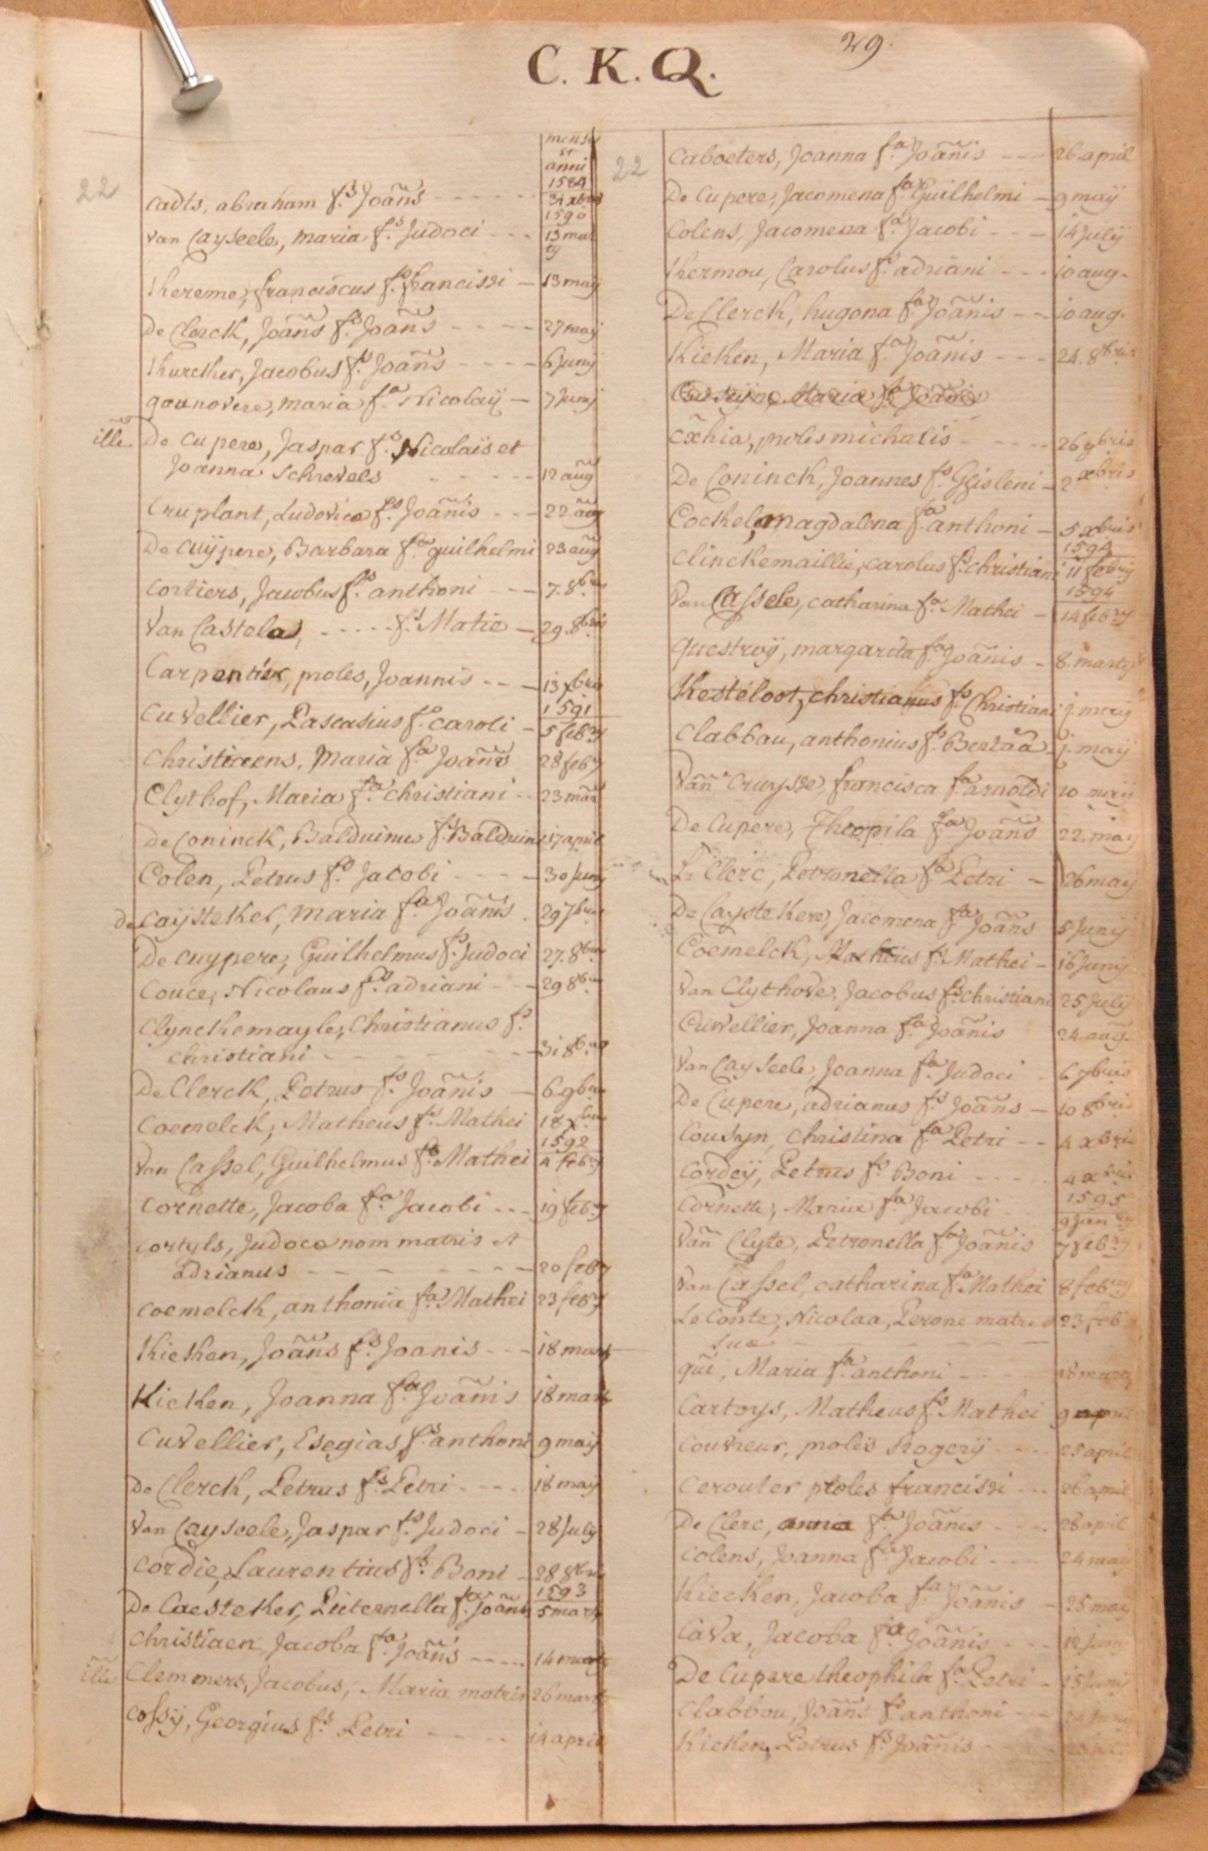 C. K. Q.
29.
mensis
et
anni
1589
22
cadts, abraham fs Joãns - - - 31 xbris
1590
Van Cayseele, maria fa Judoci - - - 13 mar
tij
khereme, franciscus fs francisci - 13 maij
De Clerck, Joãns fs Joãns - - - 27 maij
khurcker, Jacobus fs Joãns - - - 6 Junij
gounovere, maria fa Nicolaÿ - 7 Junij
ille De cupere, Jaspar fs Nicolais et
Joanna Schrevels - - - 12 aug
Cruplant, Ludovica fs Joãnis - - - 22 aug
De cuÿpere, Barbara fa guilhelmi 23 aug
cortiers, Jacobus fs anthoni - - - 7. 8bris
Van Castela, - - - fs Matie - 29. 8bris
Carpentier, proles, Joannis - - - 13 xbris
1591
Cuvellier, Pascasius fs caroli - 5 feby
Christiaens, Maria fa Joãns 28 feby
Clythof, Maria fa christiani - - 23 mar
De Coninck, Balduinus fs Balduini 17 april
Colen, Petrus fs Jacobi - - - 30 Junij
De caÿsteker, Maria fa Joãnis - 29 7bris
De cuypere, Guilhelmus fs Judoci 27. 8bris
Couce, Nicolaus fs adriani - - - 29 8bris
Clynckemayle, Christianus fs
christiani - - - 31 8bris
De Clerck, Petrus fs Joãnis - 6. 9bris
Coemelck, Matheus fs Mathei 18 xbris
1592
Van Cassel, Guilhelmus fs Mathei 4 feby
Cornette, Jacoba fa Jacobi - - - 19 feby
cortyls, Judoca nom matris et
adrianus - - - 20 feby
coemelck, anthonia fa Mathei 23 feby
Kieken, Joãns fs Joanis - - - 18 mart
Kieken, Joanna fa Joãnis 18 mart
Cuvellier, Esegias fs anthoni 9 maij
De Clerck, Petrus fs Petri - - - 18 may
Van Cayseele, Jaspar fs Judoci - 28 July
Cordie, Laurentius fs Boni - 28 8bris
1593
De Caesteker, Pieternella fa Joãns 5 mart
Christiaen Jacoba fa Joãns - - - 14 mart
ille Clemmers, Jacobus, Maria matris 26 mart
Cossÿ, Georgius fs Petri - - - 14 april
22
Caboeters, Joanna fa Joãnis - - - 26 april
De Cupere, Jacomena fa Guilhelmi - 9 maÿ
Colens, Jacomena fa Jacobi - - - 14 Julÿ
khermou, Carolus fs adriani - - - 10 aug.
De Clerck, hugona fa Joãnis - - 10 aug.
Kieken, Maria fa Joãnis - - - 24. 8bris
Maria fa Joãnis
proles michalis - - - 26 9bris
De Coninck, Joannes fs Gisleni - 2 xbris
Cockel, Magdalena fa anthoni - 5 xbris
1594
Clinckemaillie, carolus fs christiani 11 febrij
1594
Van Cassele, catharina fa Mathei - 14 feby
questroÿ, margarita fa Joãnis - 8. martij
Kesteloot, christianus fs Christiani j. maij
Clabbau, anthonius fs j. maij
Vañ Cruysse, francisca fa arnoldi 10 maij
De Cupere, Theopila fa Joãns 22. mai
Le Clerc, Petronella fa Petri - 26 may
De Caystekere, Jacomena fa Joãns 5 Junij
Coemelck, Matheus fs Mathei - 16 Junij
Van Clythove, Jacobus fs christiani 25 July
Cuvellier, Joanna fa Joãnis 24 aug.
Van Cayseele, Joanna fa Judoci - 6. 7bris
De Cupere, adrianus fs Joãns - 10 8bris
Cousyn, Christina fa Petri - - 4 xbris
Cordeÿ, Petrus fs Boni - - - 4 xbris
1595
Cornette, Maria fa Jacobi - 9 Jan
Vañ Clyte, Petronella fa Joãnis 7 feby
Van Cassel, catharina fa Mathei 8 feby
Le Conte, Nicolaa, Perone matris 23 feb
suæ
qui, Maria fa anthoni - - - 18 mart
Cartoys, Matheus fs Mathei 9 april
couvreur, proles Rogerÿ - - - 25 april
cerouter proles francisci - - - 26 april
De Clerc, anna fa Joãnis - - - 28 april
Colens, Joanna fa Jacobi - - - 24 maij
Kiecken, Jacoba fa Joãnis - 25 mai
Cava, Jacoba fa Joãnis - - - 12 Juni
De Cupere theophila fa Petri - 15 Junij
Clabbou, Joãns fs anthoni - - -
Kieken, Petrus fs Joãnis